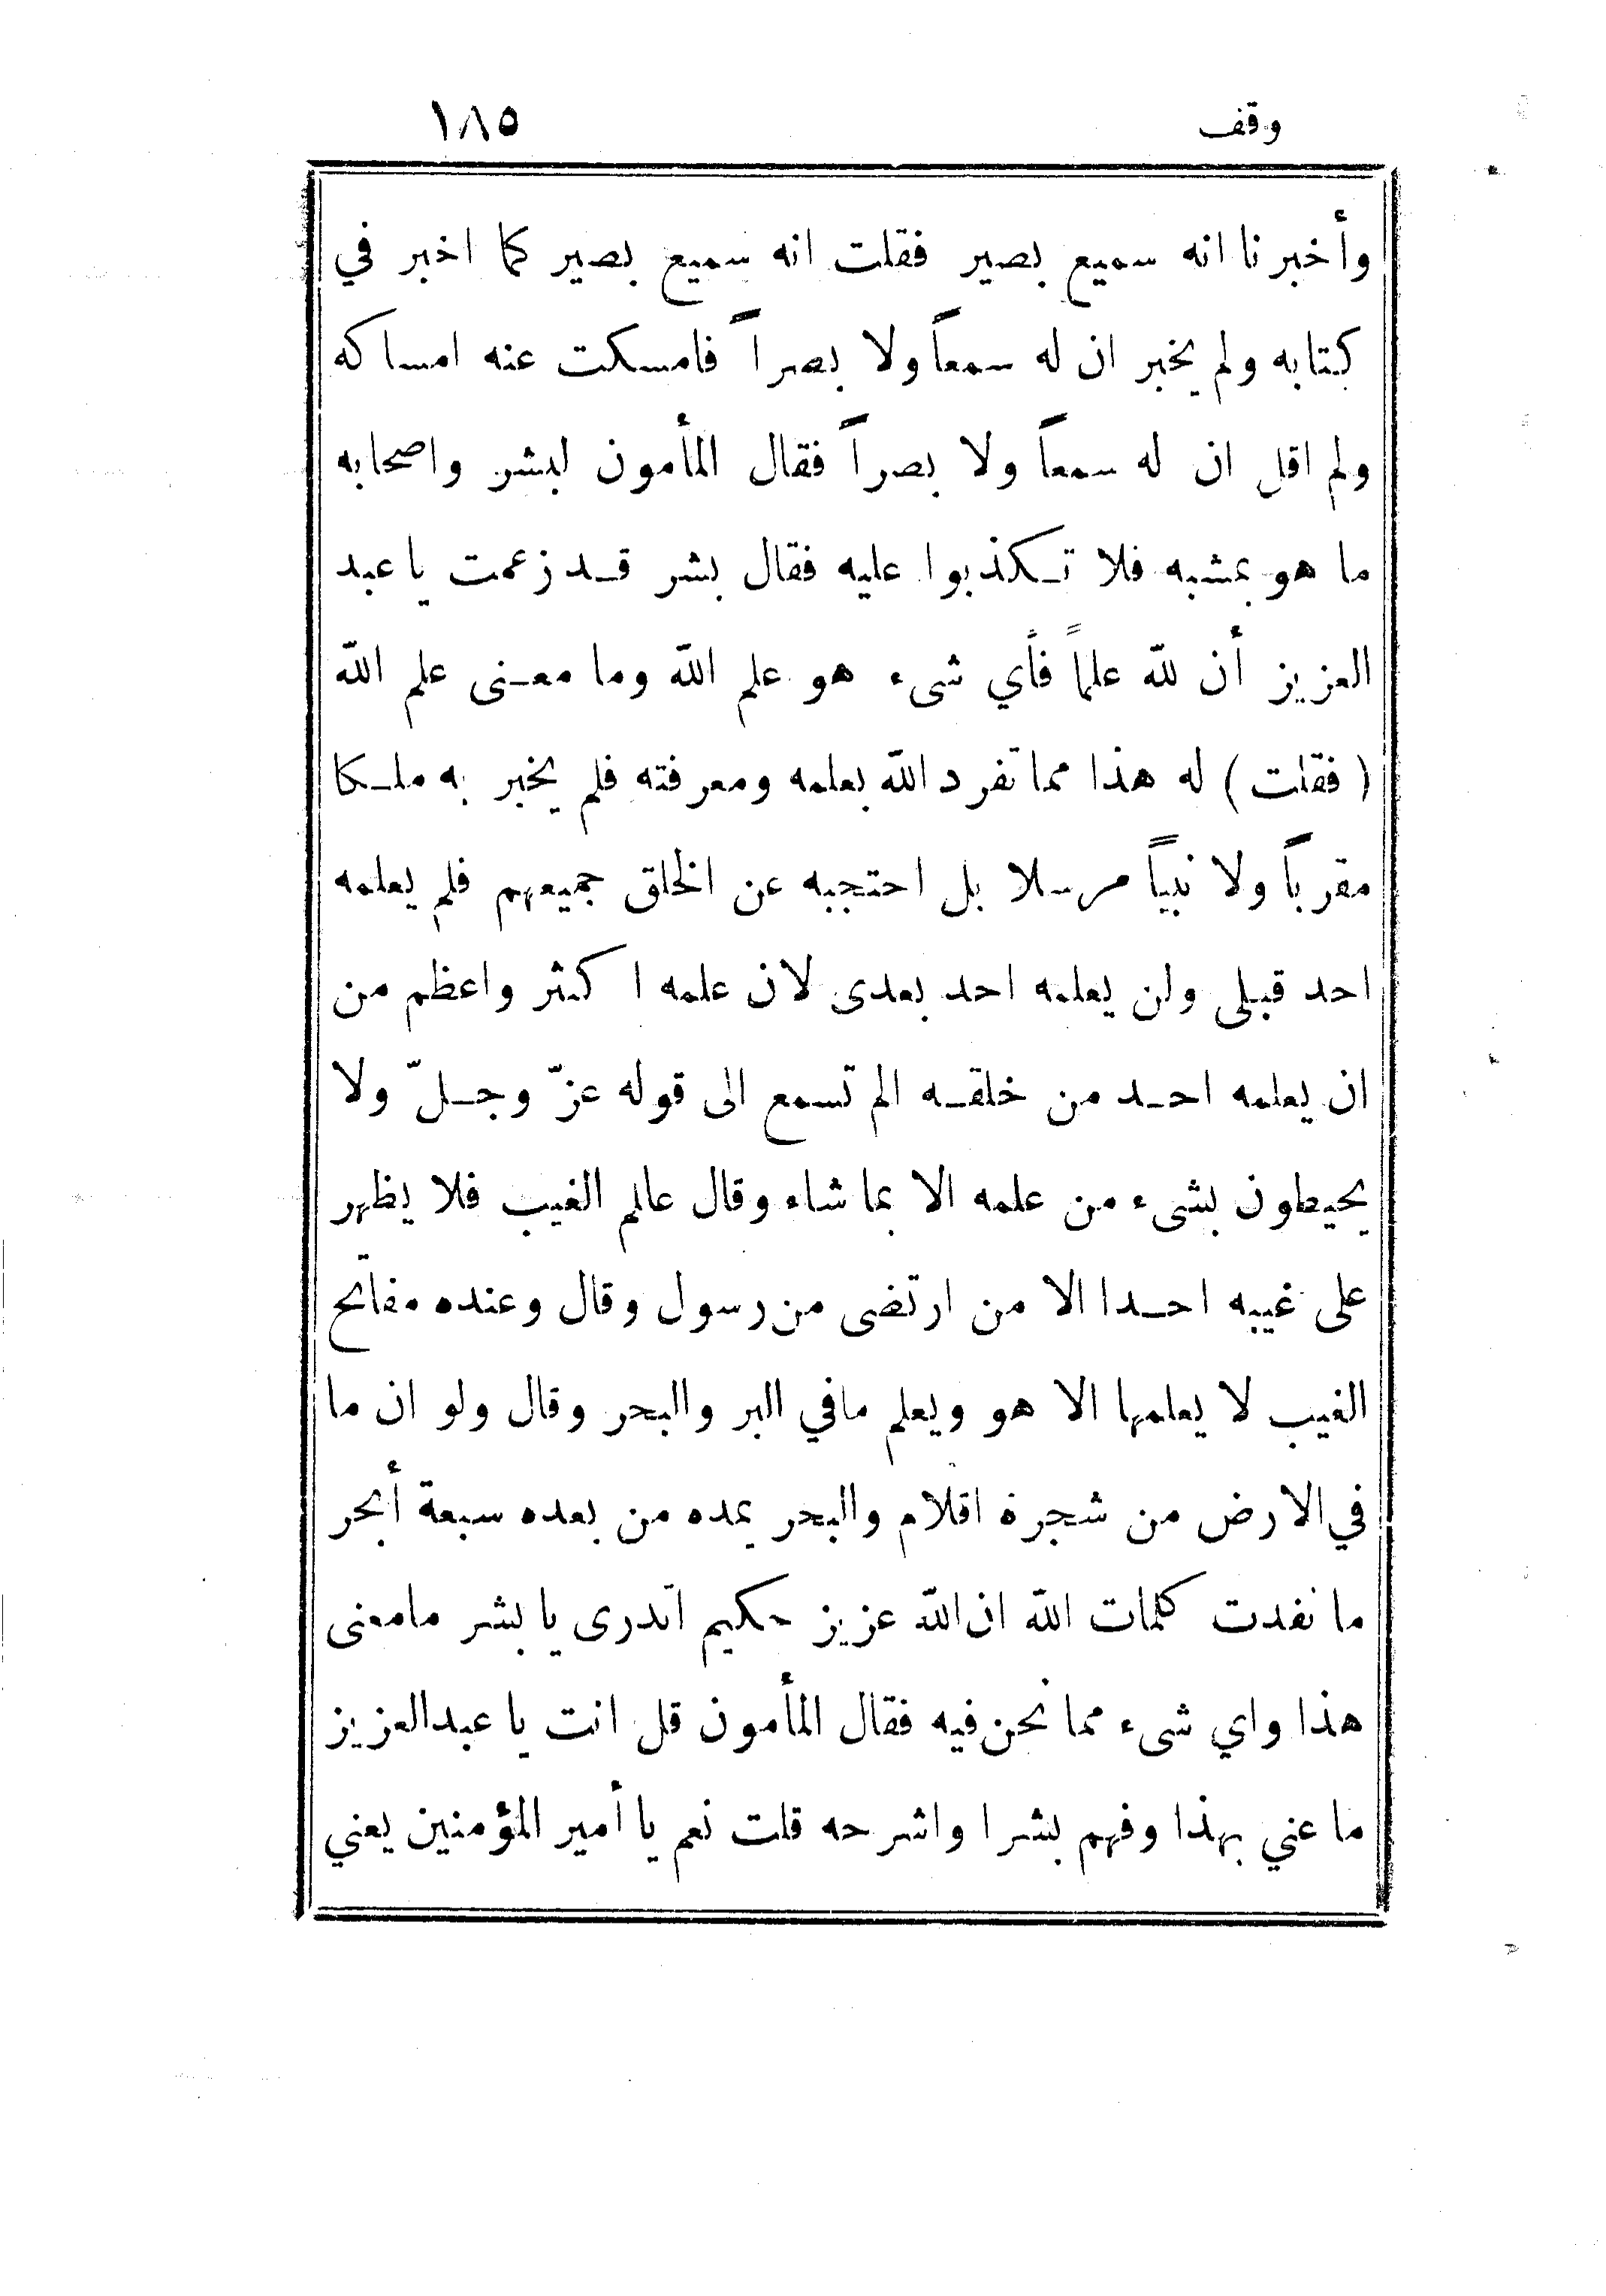 وقف ١٨٥
وأخبرنا انه سميع بصير فقلت انه سميع بصير كما اخبر في
كتابه ولم يخبر ان له سمعاً ولا بصراً فامسكت عنه امساكه
ولم اقل ان له سمعاً ولا بصراً فقال المأمون لبشر واصحابه
ما هو بمشبه فلا تكذبوا عليه فقال بشر قد زعمت يا عبد
العزيز أن لله علماً فأي شىء هو علم الله وما معنى علم الله
( فقلت ) له هذا مما تفرد الله بعلمه ومعرفته فلم يخبر به ملكا
مقرباً ولا نبياً مرسلا بل احتجبه عن الخلق جميعهم فلم يعلمه
احد قبلى ولن يعلمه احد بعدى لان علمه اكثر واعظم من
ان يعلمه احد من خلقه الم تسمع الى قوله عزّ وجلّ ولا
يحيطون بشىء من علمه الا بما شاء وقال عالم الغيب فلا يظهر
على غيبه احدا الا من ارتضى من رسول وقال وعنده مفاتح
الغيب لا يعلمها الا هو ويعلم مافي البر والبحر وقال ولو ان ما
في الارض من شجرة اقلام والبحر يمده من بعده سبعة أبحر
ما نفدت كلمات الله ان الله عزيز حكيم اتدرى يا بشر مامعنى
هذا واي شىء مما نحن فيه فقال المأمون قل انت يا عبدالعزيز
ما عني بهذا وفهم بشرا واشرحه قلت نعم يا أمير المؤمنين يعني